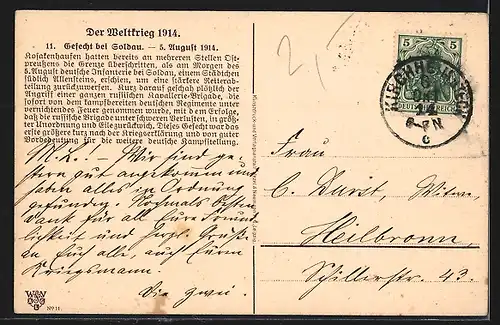 Der Weltkrieg 1914.
11. Gefecht bei Soldau. — 5. August 1914.
Kosakenhaufen hatten bereits an mehreren Stellen Ost-
preußens die Grenze überschritten, als am Morgen des
5. August deutsche Infanterie bei Soldau, einem Städtchen
südlich Allensteins, erschien, um eine stärkere Reiterab-
teilung zurückzuwerfen. Kurz darauf geschah plötzlich der
Angriff einer ganzen russischen Kavallerie-Brigade, die
sofort von dem kampfbereiten deutschen Regimente unter
vernichtendes Feuer genommen wurde, mit dem Erfolge,
daß die russische Brigade unter schweren Verlusten, in größ-
ter Unordnung und Eile zurückwich. Dieses Gefecht war das
erste größere kurz nach der Kriegserklärung und von guter
Vorbedeutung für die weitere deutsche Kampfstellung.
M. L.! — Wir sind ge-
stern gut angekommen und
haben alles in Ordnung
gefunden. Nochmals besten
Dank für all Eure Freund-
lichkeit und herzl. Grüße
an Euch alle, auch Euren
Kriegsmann.
Die zwei.
W&N
No 11.
2
5 5
DEUTSCHES REICH
KIRCHHEIM
6-7N
c
Frau
C. Durst, Witwe,
Heilbronn,
Schillerstr. 43.